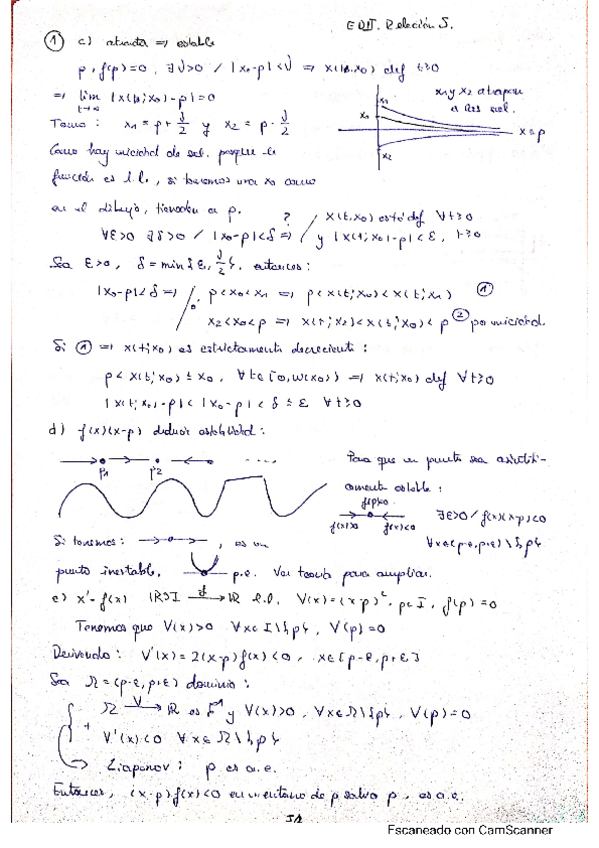 EDII. Relación 5.
① c) atractor ⇒ estable
p, f(p)=0, ∃ν>0 / |x₀-p|<ν ⇒ x(t;x₀) def t≥0
⇒ lim |x(t;x₀)-p|=0
t→∞
x₁ y x₂ atrapan
a las sol.
x₁
x₀
x₂
x=p
Tomo: x₁ = p+ν/2 y x₂ = p-ν/2
Como hay unicidad de sol. porque la
función es l.l., si tomamos una x₀ como
en el dibujo, tienden a p.
∀ε>0 ∃δ>0 / |x₀-p|<δ ⇒? / x(t,x₀) está def ∀t≥0
y |x(t;x₀)-p|<ε, t≥0
Sea ε>0, δ = min{ε, ν/2}, entonces:
|x₀-p|<δ ⇒ / p<x₀<x₁ ⇒ p<x(t;x₀)<x(t;x₁) ①
o x₂<x₀<p ⇒ x(t;x₂)<x(t;x₀)<p ② por unicidad.
Si ① ⇒ x(t;x₀) es estrictamente decreciente:
p<x(t;x₀)≤x₀, ∀t∈[0,w(x₀)) ⇒ x(t;x₀) def ∀t≥0
|x(t;x₀)-p|<|x₀-p|<δ≤ε ∀t≥0
d) f(x)(x-p) deducir estabilidad:
p₁ p₂ ....
Para que un punto sea asintóti-
camente estable:
f(p)=0
f(x)>0 f(x)<0
∃ε>0 / f(x)(x-p)<0
∀x∈(p-ε,p+ε)\{p}
Si tenemos: , es un
punto inestable, p.e. Ver teoría para ampliar.
e) x'=f(x) ℝ⊃I →f ℝ l.l. V(x)=(x-p)², p∈I, f(p)=0
Tenemos que V(x)>0 ∀x∈I\{p}, V(p)=0
Derivando: V'(x)=2(x-p)f(x)<0, x∈[p-ε,p+ε]
Sea Ω=(p-ε,p+ε) dominio:
Ω →V ℝ es C¹ y V(x)>0, ∀x∈Ω\{p}, V(p)=0
+
V'(x)<0 ∀x∈Ω\{p}
→ Liapunov: p es a.e.
Entonces, (x-p)f(x)<0 en un entorno de p salvo p, es a.e.
Escaneado con CamScanner